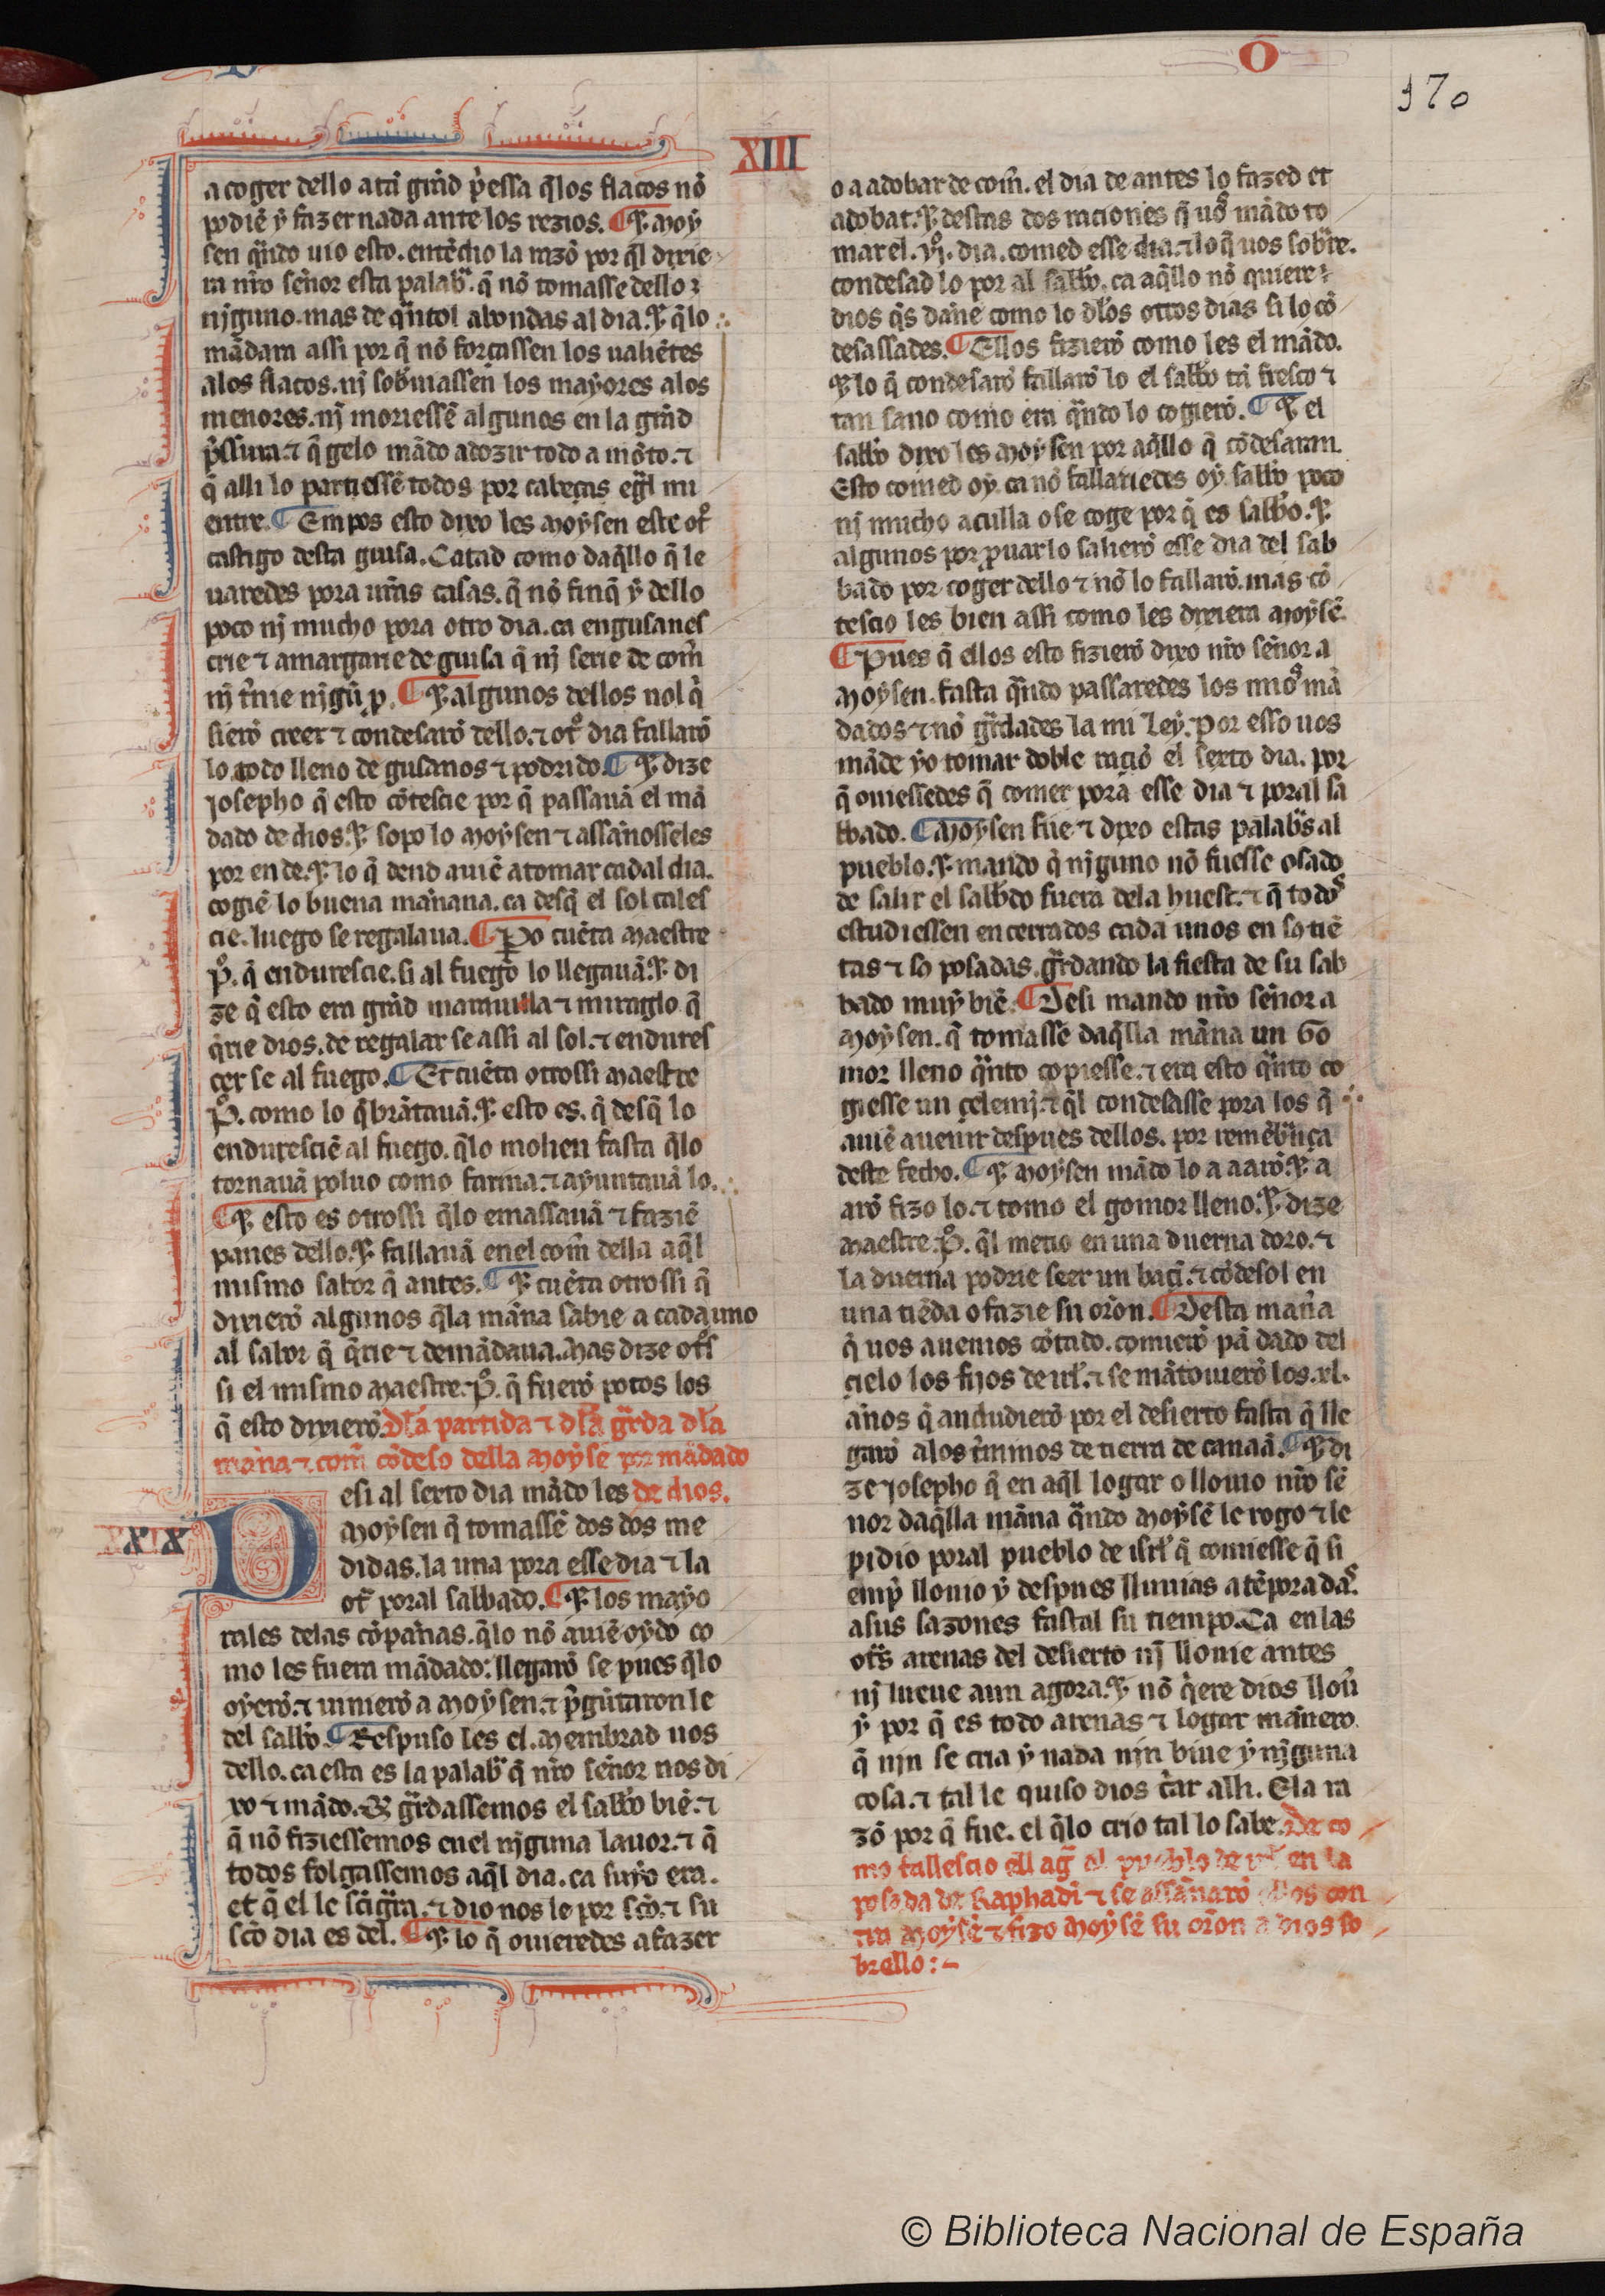 O
170
XIII
a coger dello atã grãd p̃essa q̃ los flacos nõ
podiẽ ẏ fazer nada ante los rezios. ¶ ⁊ Moẏ
sen q̃ndo uio esto. entẽdio la razõ por q̃l dixie
ra nr̃o señor esta palabᷓ. q̃ nõ tomasse dello
nj̃guno. mas de q̃ntol abondas al dia. ⁊ q̃ lo
mãdara assi por q̃ nõ forçassen los ualiẽtes
a los flacos. nj̃ sob̃uiassen los maẏores a los
menores. nj̃ moriessẽ algunos en la grãd
p̃ssura. ⁊ q̃ gelo mãdo adozir todo a mõto. ⁊
q̃ alli lo partiessẽ todos por cabeças egᷓl mi
entre. ¶ Empos esto dixo les Moẏsen este otº
castigo desta guisa. Catad como daq̃llo q̃ le
uaredes pora ur̃as casas. q̃ nõ finq̃ ẏ dello
poco nj̃ mucho pora otro dia. ca engusanes
crie ⁊ amargarie de guisa q̃ nj̃ serie de com̃
nj̃ t̃nie nj̃gũ p̱. ¶ ⁊ algunos dellos nol q̃
sierõ creer ⁊ condesarõ dello. ⁊ otº dia fallarõ
lo todo lleno de gusanos ⁊ podrido. ¶ ⁊ dize
Josepho q̃ esto cõtescie por q̃ passauã el mã
dado de dios. ⁊ sopo lo Moẏsen ⁊ assañosseles
por ende. ⁊ lo q̃ dend auiẽ a tomar cadal dia.
cogiẽ lo buena mañana. ca desq̃ el sol cales
cie. luego se regalaua. ¶ P̱o cuẽta Maestre
Pº. q̃ endurescie. si al fuego lo llegauã. ⁊ di
ze q̃ esto era grãd marauilla ⁊ miraglo q̃
q̃rie dios. de regalar se assi al sol. ⁊ endures
cer se al fuego. ¶ Et cuẽta otrossi Maestre
Pº. como lo q̃brãtauã. ⁊ esto es. q̃ desq̃ lo
enduresciẽ al fuego. q̃ lo molien fasta q̃ lo
tornauã poluo como farina. ⁊ aẏuntauã lo.
¶ ⁊ esto es otrossi q̃ lo emassauã ⁊ faziẽ
panes dello. ⁊ fallauã en el com̃ della aq̃l
mismo sabor q̃ antes. ¶ ⁊ cuẽta otrossi q̃
dixierõ algunos q̃ la mãna sabie a cada uno
al sabor q̃ q̃rie ⁊ demãdaua. Mas dize otºsi
si el mismo Maestre. Pº. q̃ fuerõ pocos los
q̃ esto dixierõ. Dl̃a partida ⁊ dl̃a gᷓrda dl̃a
mãna ⁊ com̃ cõdeso della Moẏsẽ por mãdado
esi al sexto dia mãdo les de dios.
XXIX
D
Moẏsen q̃ tomassẽ dos dos me
didas. la una pora esse dia ⁊ la
otᷓ poral sabbado. ¶ ⁊ los maẏo
rales de las cõpañas. q̃ lo nõ auiẽ oẏdo co
mo les fuera mãdado: llegarõ se pues q̃ lo
oẏerõ. ⁊ uinierõ a Moẏsen. ⁊ p̃gũtaron le
del sabb̃o. ¶ Respuso les el. Membrad uos
dello. ca esta es la palabᷓ q̃ nr̃o señor nos di
xo ⁊ mãdo. Q̃ gᷓrdassemos el sabb̃o biẽ. ⁊
q̃ nõ fiziessemos en el nj̃guna lauor. ⁊ q̃
todos folgassemos aq̃l dia. ca suẏo era.
et q̃ el le sc̃igᷓra. ⁊ dio nos le por sc̃o. ⁊ su
sc̃o dia es del. ¶ ⁊ lo q̃ ouieredes a fazer
o a adobar de com̃. el dia de antes lo fazed et
adobat. ⁊ destas dos raciones q̃ uos mãdo to
mar el. vjº. dia. comed esse dia. ⁊ lo q̃ uos sobr̃e.
condesad lo por al sabb̃o. ca aq̃llo nõ quiere
dios q̃ s dañe como lo dl̃os otros dias si lo cõ
desassades. ¶ Ellos fizierõ como les el mãdo.
⁊ lo q̃ condesarõ fallarõ lo el sabb̃o tã fresco ⁊
tan sano como era q̃ndo lo cogierõ. ¶ ⁊ el
sabb̃o dixo les Moẏsen por aq̃llo q̃ cõdesaran.
Esto comed oẏ. ca nõ fallariedes oẏ sabb̃o poco
nj̃ mucho aculla o se coge por q̃ es sabb̃o. ⁊
algunos por p̱uarlo salierõ esse dia del sab
bado por coger dello ⁊ nõ lo fallarõ. mas cõ
tescio les bien assi como les dixiera Moẏsẽ.
¶ Pues q̃ ellos esto fizierõ dixo nr̃o señor a
Moẏsen. fasta q̃ndo passaredes los mios mã
dados ⁊ nõ gᷓrdades la mi Leẏ. por esso uos
mãde ẏo tomar doble raciõ el sexto dia. por
q̃ ouiessedes q̃ comer pora esse dia ⁊ poral sa
bbado. ¶ Moẏsen fue ⁊ dixo estas palabᷓs al
pueblo. ⁊ mando q̃ nj̃guno nõ fuesse osado
de salir el sabb̃do fuera dela huest. ⁊ q̃ todos
estudiessen encerrados cada unos en sᵒ tiẽ
tas ⁊ sᵒ posadas. gᷓrdando la fiesta de su sab
bado muẏ biẽ. ¶ Desi mando nr̃o señor a
Moẏsen. q̃ tomasse daq̃lla mãna un Go
mor lleno q̃nto copiesse. ⁊ era esto q̃nto co
giesse un çelemj̃. ⁊ q̃l condesasse pora los q̃
auiẽ auenir despues dellos. por remẽbᷓnça
deste fecho. ¶ ⁊ Moẏsen mãdo lo a aarõ. ⁊ a
arõ fizo lo. ⁊ tomo el gomor lleno. ⁊ dize
Maestre. Pº. q̃l metio en una duerna doro. ⁊
la duerna podrie seer un baçĩ. ⁊ cõdesol en
una tiẽda o fazie su or̃on. ¶ Desta mañã
q̃ uos auemos cõtado. comierõ pã dado del
cielo los fijos de isrl̃. ⁊ se mãtouierõ los. xl.
años q̃ andudierõ por el desierto fasta q̃ lle
garõ a los t̃minos de tierra de canaã. ¶ ⁊ di
ze Josepho q̃ en aq̃l logar o llouio nr̃o sẽ
nor daq̃lla mãna q̃ndo Moẏsẽ le rogo ⁊ le
pidio poral pueblo de isrl̃ q̃ comiesse q̃ si
empᷓ llouio ẏ despues lluuias a tẽporadas.
a sus sazones fastal su tiempo. Ca en las
otᷓs arenas del desierto nj̃ llouie antes
nj̃ lueue aun agora. ⁊ nõ q̃ere dios llou̓
ẏ por q̃ es todo arenas ⁊ logar mañero
q̃ nin se cria ẏ nada nin biue ẏ nj̃guna
cosa. ⁊ tal le quiso dios c̃ar alli. E la ra
zõ por q̃ fue. el q̃ lo crio tal lo sabe. De co
mo fallescio ell agᷓ al pueblo de isrl̃ en la
posada de Raphadĩ ⁊ se assañarõ ellos con
tra Moẏsẽ ⁊ fizo Moẏsẽ su or̃on a dios so
brello:-
© Biblioteca Nacional de España